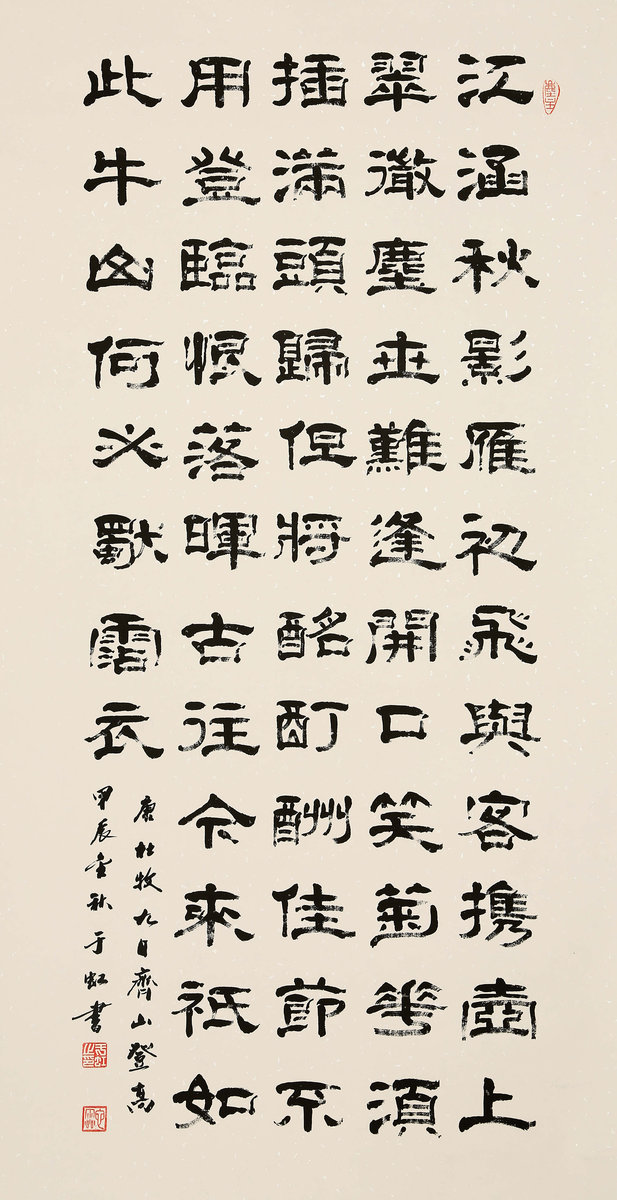 江涵秋影雁初飛與客携壺上
翠微塵世難逢開口笑菊華須
插滿頭歸但將酩酊酬佳節不
用登臨恨落暉古往今來祇如
此牛山何必獨霑衣
唐杜牧九日齊山登高
甲辰金秋于虹書